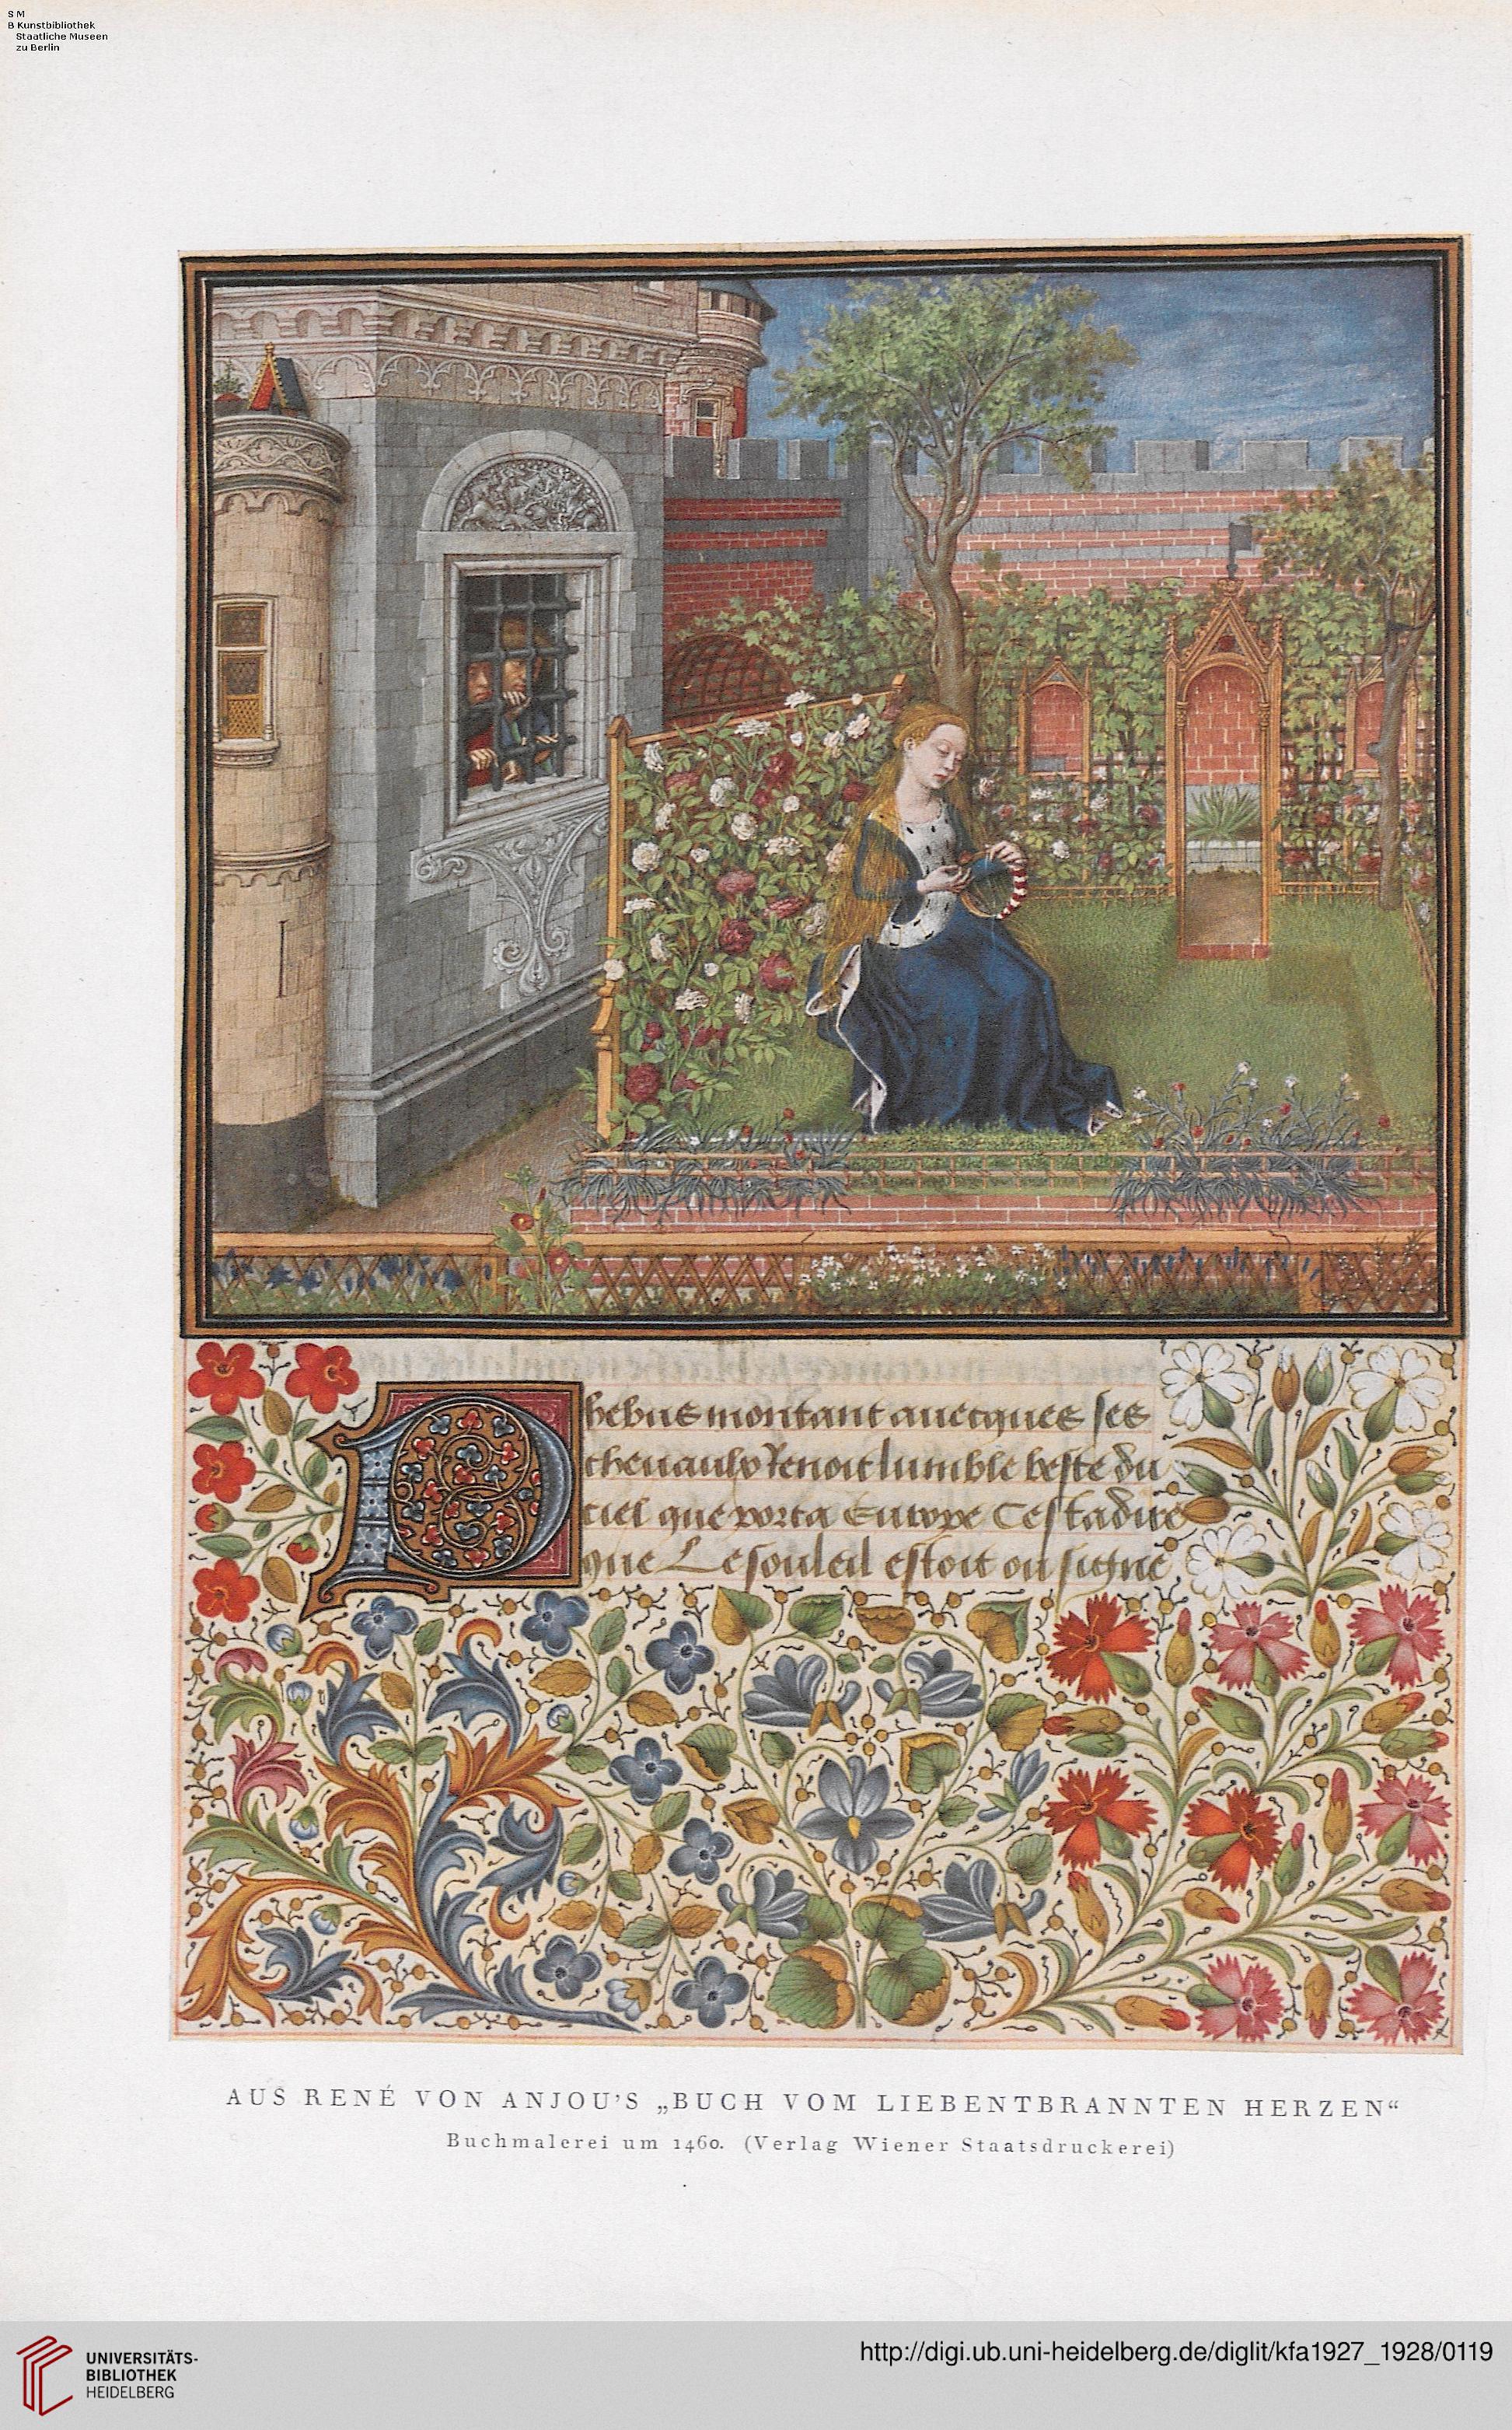 S M
B Kunstbibliothek
Staatliche Museen
zu Berlin
Phebus montant auecques ses
cheuaulx Tenoit lumble beste du
ciel que porta Europe Cestadire
que Le souleil estoit ou signe
AUS RENÉ VON ANJOU'S „BUCH VOM LIEBENTBRANNTEN HERZEN“
Buchmalerei um 1460. (Verlag Wiener Staatsdruckerei)
UNIVERSITÄTS-
BIBLIOTHEK
HEIDELBERG
http://digi.ub.uni-heidelberg.de/diglit/kfa1927_1928/0119